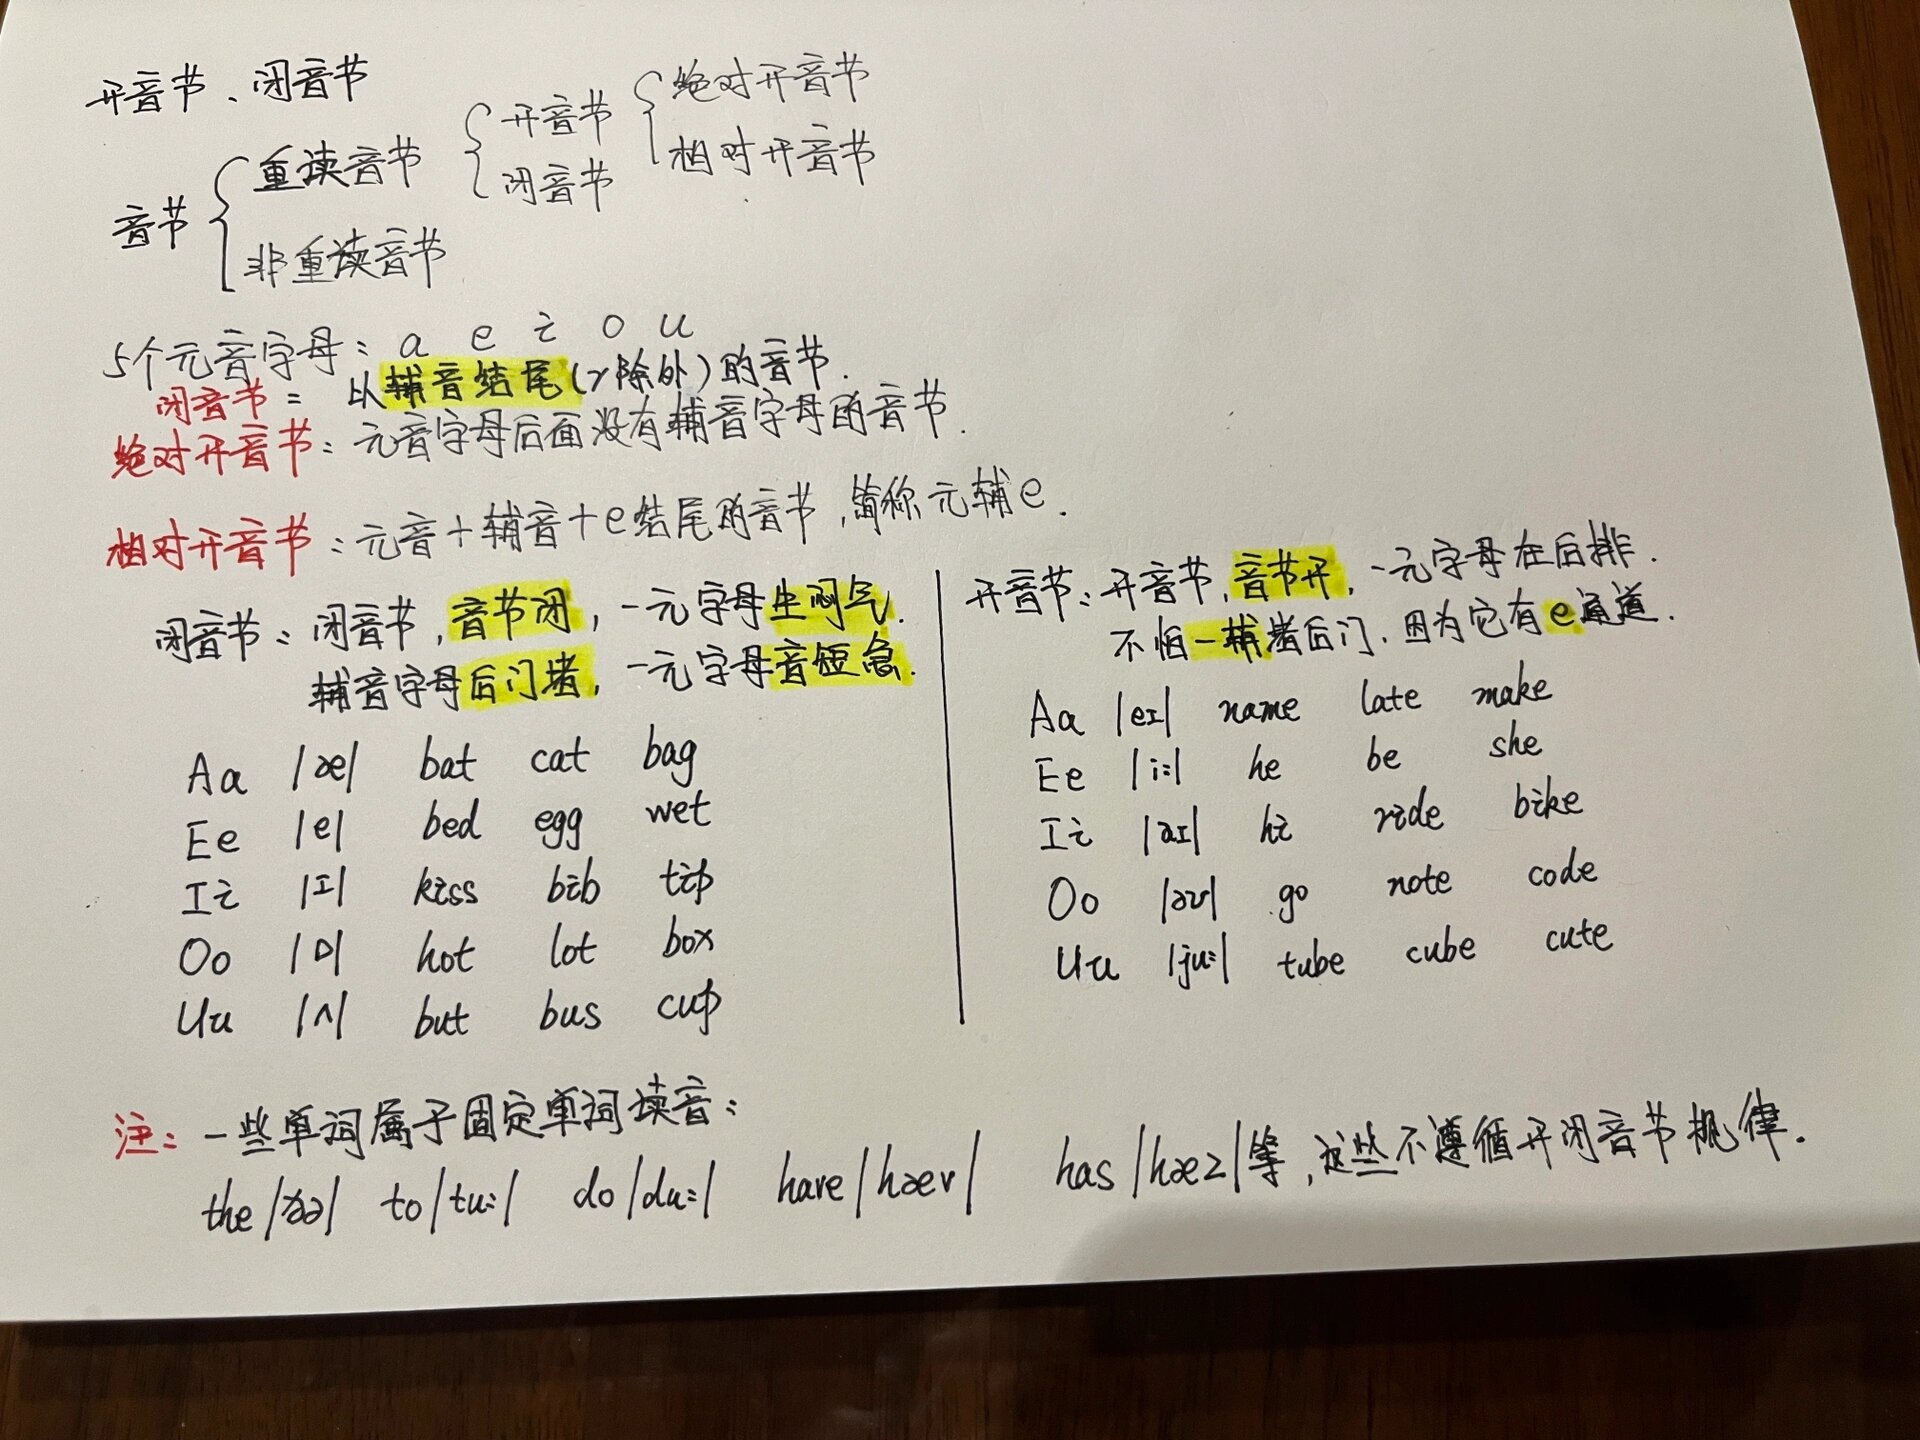 开音节、闭音节
音节 { 重读音节 { 开音节 { 绝对开音节
相对开音节
闭音节
非重读音节
5个元音字母: a e i o u
闭音节 = 以辅音结尾(r除外)的音节.
绝对开音节: 元音字母后面没有辅音字母的音节.
相对开音节: 元音+辅音+e结尾的音节,简称元辅e.
闭音节: 闭音节,音节闭,一元字母生闷气.
辅音字母后门堵,一元字母音短急.
Aa |æ| bat cat bag
Ee |e| bed egg wet
Ii |ɪ| kiss bib tip
Oo |ɒ| hot lot box
Uu |ʌ| but bus cup
开音节: 开音节,音节开,一元字母在后排.
不怕一辅堵后门,因为它有e通道.
Aa |eɪ| name late make
Ee |i:| he be she
Ii |aɪ| hi ride bike
Oo |əʊ| go note code
Uu |ju:| tube cube cute
注: 一些单词属于固定单词读音:
the |ðə| to |tu:| do |du:| have |hæv| has |hæz| 等,这些不遵循开闭音节规律.